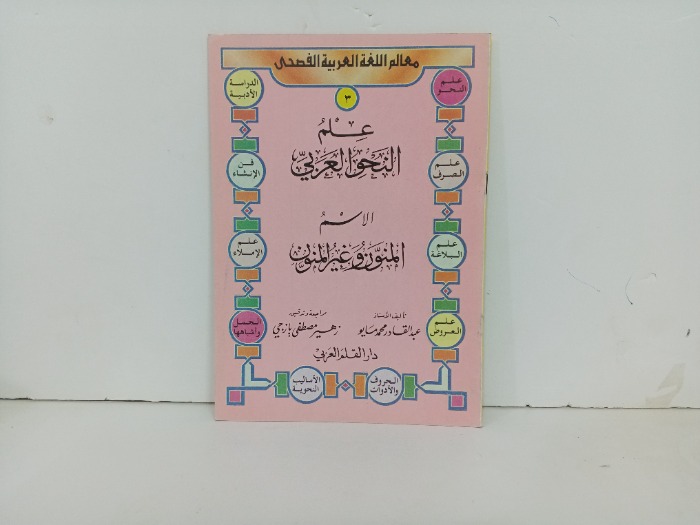 معالم اللغة العربية الفصحى
٣
علم النحو
الدراسة الأدبية
علم
النحو العربي
علم الصرف
فن الإنشاء
الاسم
المنون وغير المنون
علم البلاغة
علم الإملاء
تأليف الأستاذ
عبد القادر محمد مايو
مراجعة وتدقيق
زهير مصطفى يازجي
دار القلم العربي
علم العروض
الجمل وأشباهها
الحروف والأدوات
الأساليب النحوية